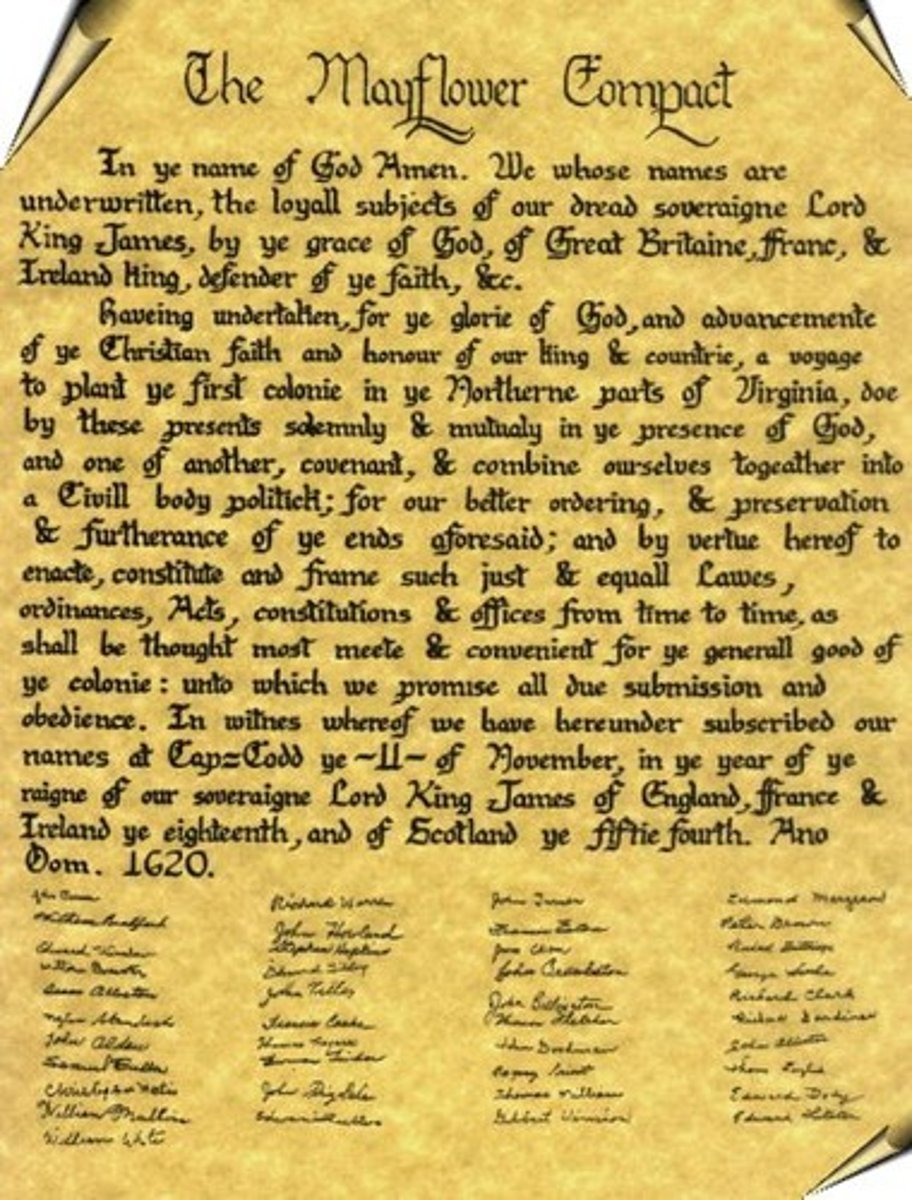 The Mayflower Compact
In ye name of God Amen. We whose names are
underwritten, the loyall subjects of our dread soveraigne Lord
King James, by ye grace of God, of Great Britaine, ffranc, &
Ireland king, defender of ye faith, &c.
Haveing undertaken, for ye glorie of God, and advancemente
of ye Christian faith and honour of our king & countrie, a voyage
to plant ye first colonie in ye Northerne parts of Virginia, doe
by these presents solemnly & mutualy in ye presence of God,
and one of another, covenant, & combine ourselves togeather into
a Civill body politick; for our better ordering, & preservation
& furtherance of ye ends aforesaid; and by vertue hereof to
enacte, constitute and frame such just & equall Lawes,
ordinances, Acts, constitutions & offices from time to time, as
shall be thought most meete & convenient for ye generall good of
ye colonie: unto which we promise all due submission and
obedience. In witnes whereof we have hereunder subscribed our
names at Cap=Codd ye ~11~ of November, in ye year of ye
raigne of our soveraigne Lord King James of England, ffrance &
Ireland ye eighteenth, and of Scotland ye fiftie fourth. Ano
Dom. 1620.
William Bradford
Isaac Allerton
John Alden
Samuel Fuller
William Mullins
William White
Richard Warren
John Howland
Stephen Hopkins
John Tilley
John Rigdale
John Turner
John Crackston
John Billington
Thomas Williams
Gilbert Winslow
Edmond Margeson
Peter Brown
Richard Clark
Richard Gardiner
John Allerton
Edward Doty